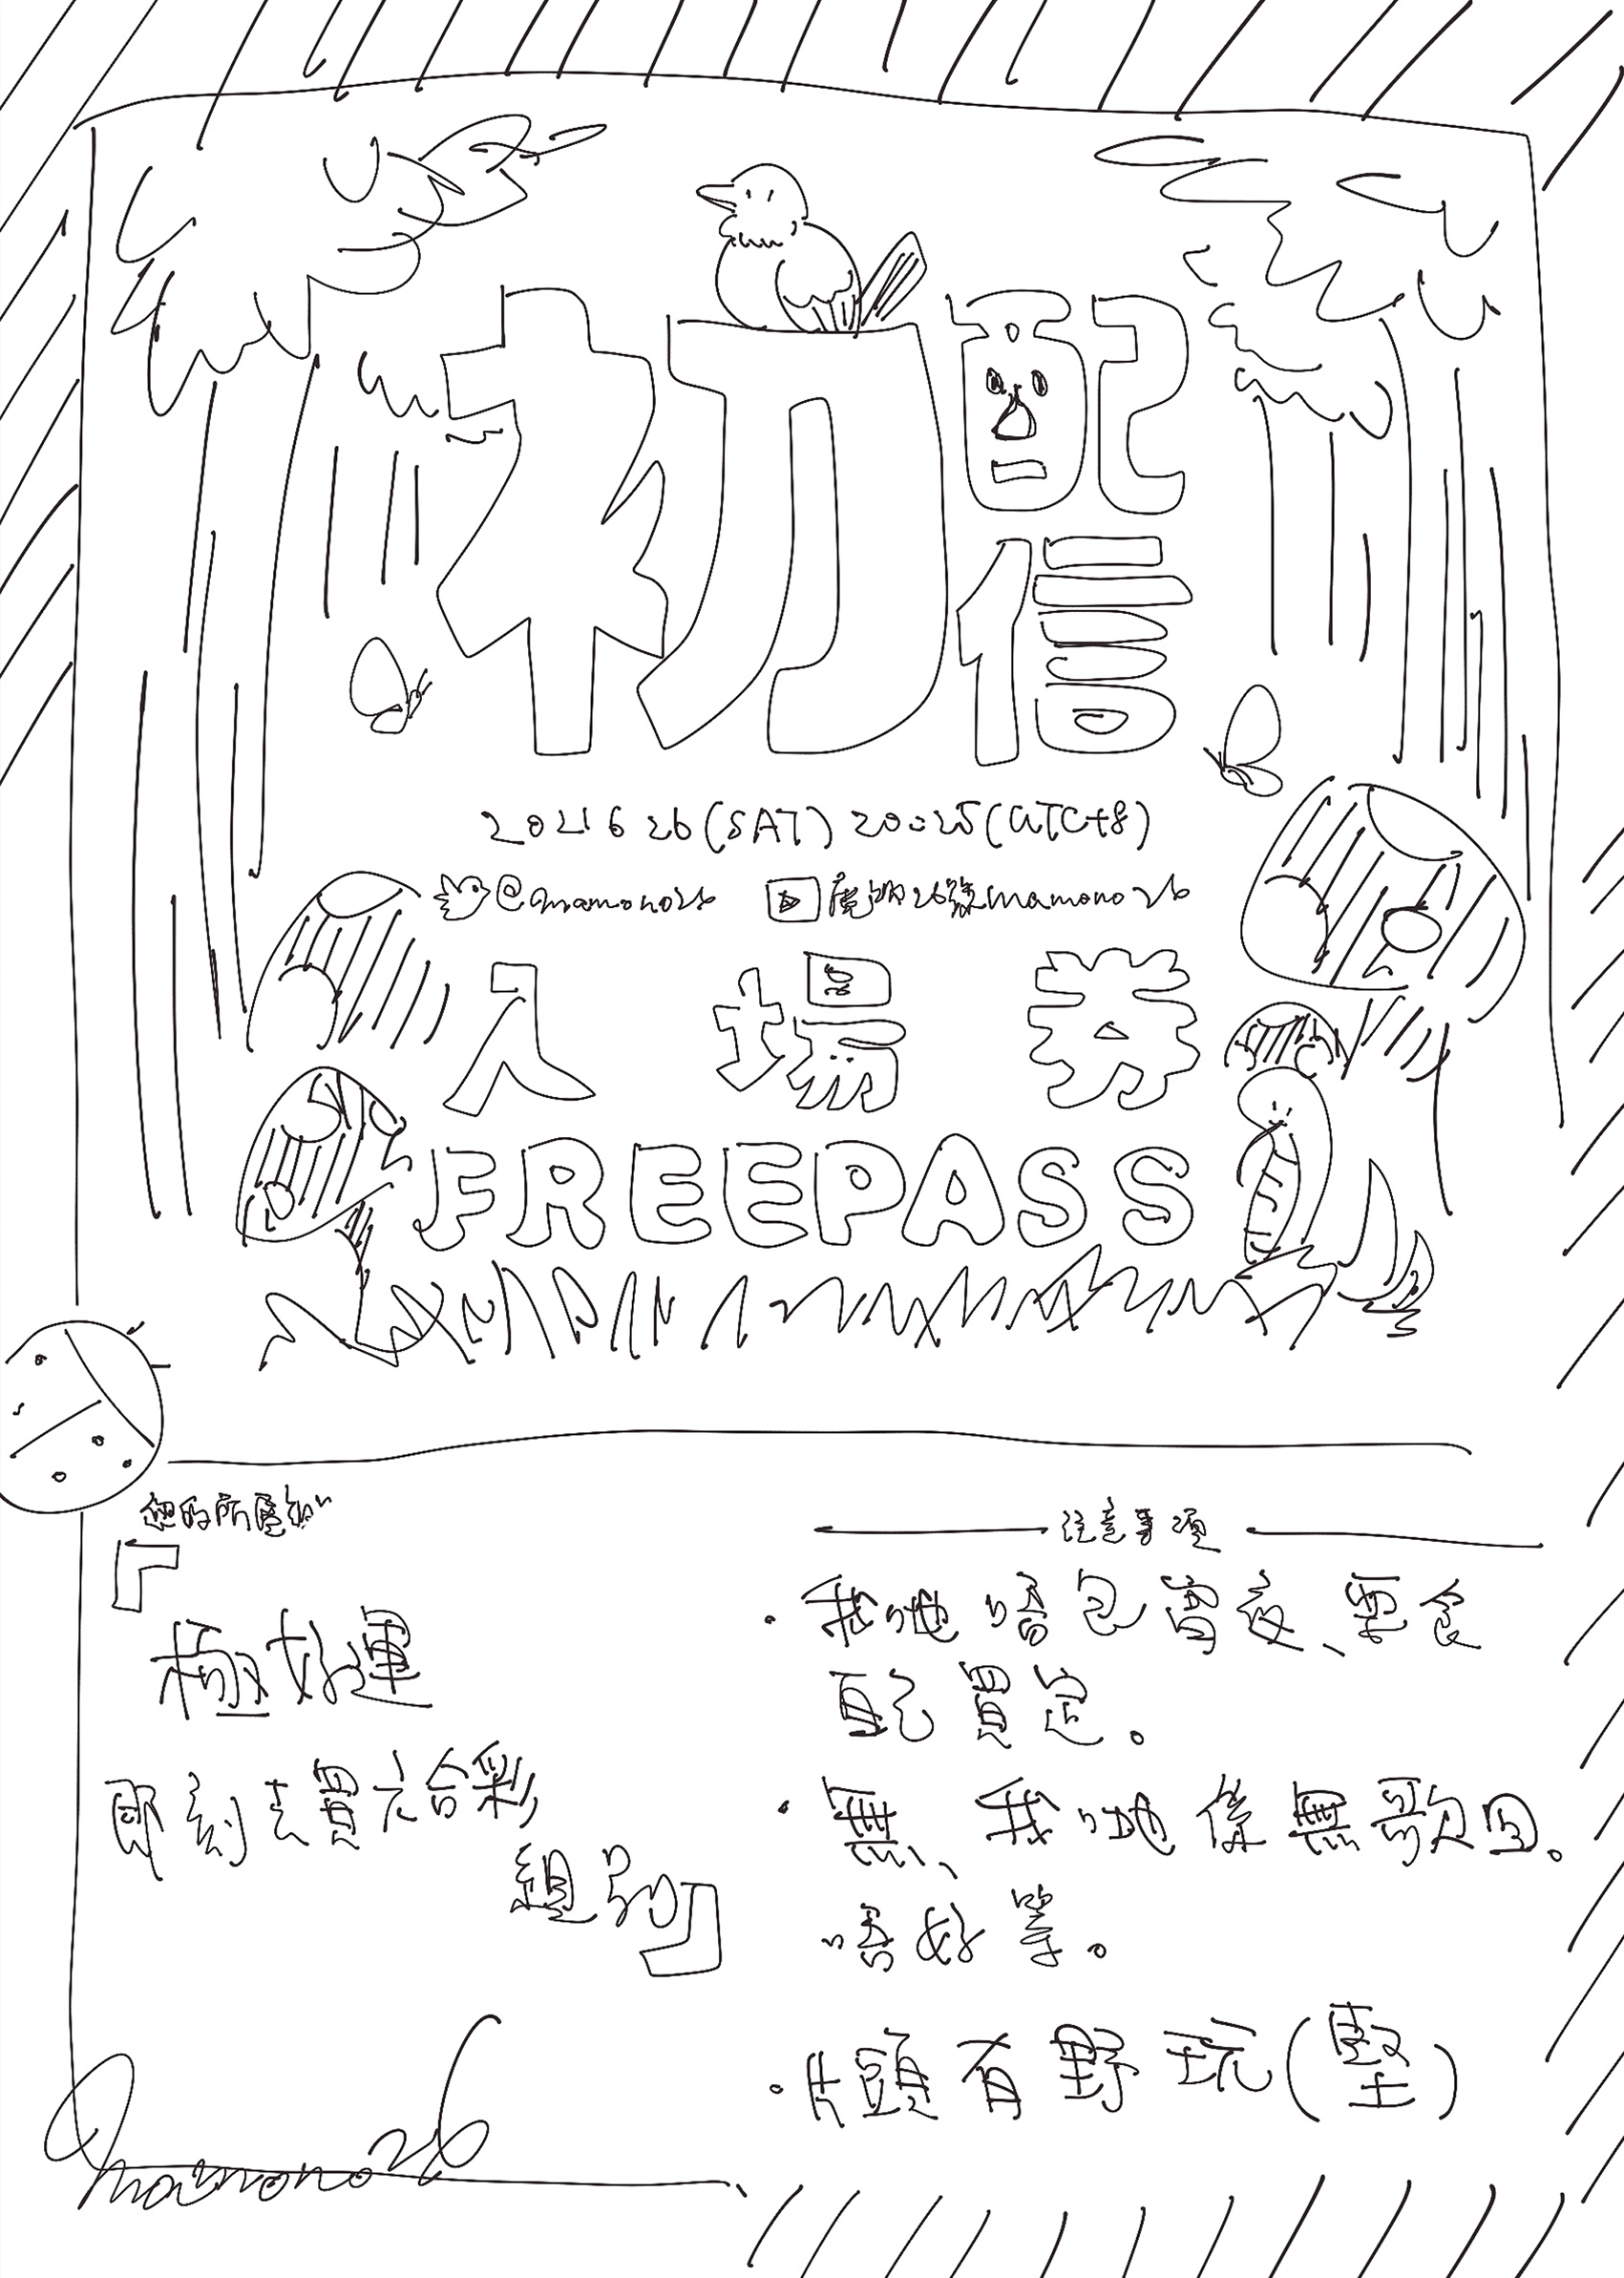 初配信
2021 6 26 (SAT) 20:25 (UTC+8)
@mamono26 魔物26號mamono26
入場券
FREEPASS
您的所屬組
『極好運
即刻去買六合彩
組別』
注意事項
・我哋唔包宵夜、要食
自己買定。
・無、我哋係無歌回。
唔好等。
・片頭有野玩(堅)
mamono26